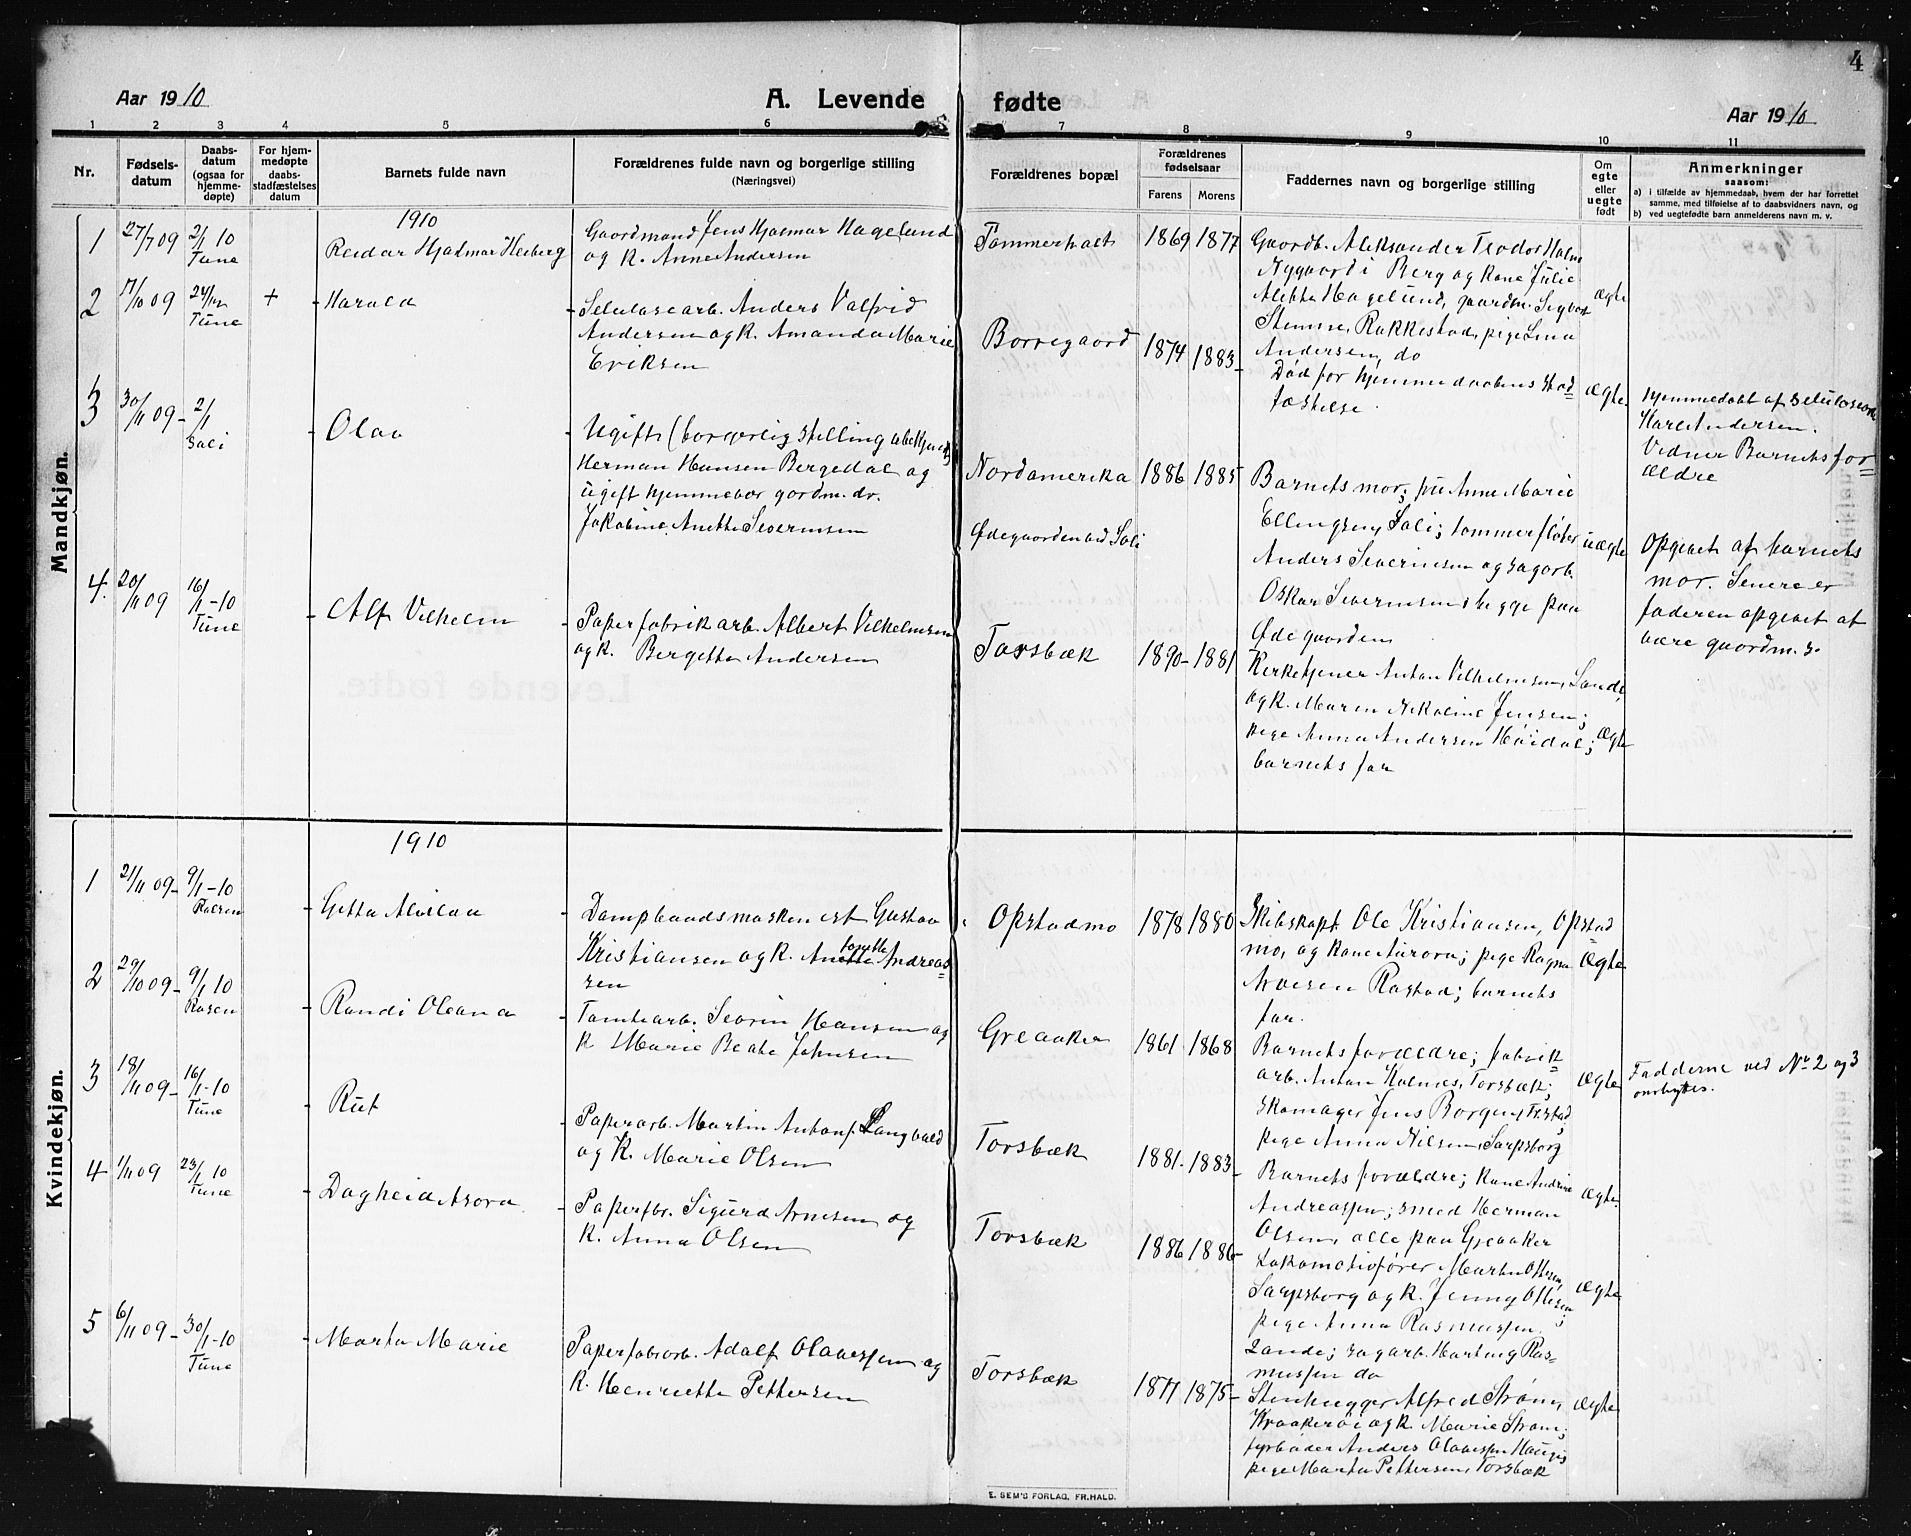 4
Aar 1910
A. Levende fødte
Aar 1910
1 2 3 4 5 6 7 8 9 10 11
Nr.
Fødsels-
datum
Daabs-
datum
(ogsaa for
hjemme-
døpte)
For hjem-
medøpte
daabs-
stadfæstelses
datum
Barnets fulde navn
Forældrenes fulde navn og borgerlige stilling
(Næringsvei)
Forældrenes bopæl
Forældrenes
fødselsaar
Farens Morens
Faddernes navn og borgerlige stilling
Om
egte
eller
uegte
født
Anmerkninger
saasom:
a) i tilfælde av hjemmedaab, hvem der har forrettet
samme, med tilføielse af to daabsvidners navn, og
b) ved uegtefødte barn anmelderens navn m. v.
Mandkjøn.
1910
1 27/7 09 2/1 10
Tune
Reidar Hjalmar Heiberg
Gaardmand Jens Hjalmar Hagelund
og k. Anne Andersen
1869 1877
Gaardb. Aleksander Teodor Holm
Nygaard i Berg og kone Julie
Hagelund, gaardm. Sigvart
Stemme, Rakkestad, pige Lina
Andersen, do
Ægte
2 09 24/12
Tune
+
Harald
Selulosearb. Anders Valfrid
Andersen og k. Amanda Marie
Eriksen
Borregaard
1874 1883
Død før hjemmedaabens stad=
fæstelse.
Ægte
Hjemmedøbt af
Karl Andersen.
Vidner Barnets for=
ældre
3 30/11 09 2/1
Soli
Olav
Ugift (borgerlig stilling ubekjendt)
Herman Hansen Bergedal og
ugift hjemmevær. gardm. dr.
Jakobine Anette Severinsen
Nordamerika
Ødegaarden ved Soli
1886 1885
Barnets mor; fru Anne Marie
Ellingsen, Soli; tømmerfløter
Anders Severinsen og sagarb.
Oskar Severinsen begge paa
Ødegaarden
uægte
Opgivet af barnets
mor. Senere er
faderen opgivet at
være gaardm. s.
4. 20/11 09 16/1-10
Tune
Alf Vilhelm
Paperfabrikarb. Albert Vilhelmsen
og k. Bergette Andersen
Torsbæk
1890 1881
Kirketjener Anton Vilhelmsen, Lande
og k. Maren Nikoline Jensen;
pige Anna Andersen Høidal;
barnets far
Ægte
Kvindekjøn.
1910
1 21/11 09 9/1-10
Gustav
Kristiansen og k. Andreas=
sen
Opstadmo
1878 1880
Skibskapt. Ole Kristiansen, Opstad
mo, og kone Aurora; pige Ragna
Rostad; barnets
far.
Ægte
2 29/10 09 9/1 10
Randi Oleana
Tomtearb. Sevrin Hansen og
k Marie Beate Johnsen
Greaaker
1861 1868
Barnets forældre; fabrik=
arb. Anton Holmes, Torsbæk;
skomager Jens Borgen,
pige Anna Nilsen, Sarpsborg
Ægte
Fadderne ved Nr 2 og 3
ombyttes.
3 18/11 09 16/1-10
Tune
Rut
Paperarb. Martin Anton Langvald
og k. Marie Olsen
Torsbæk
1881 1883
Barnets forældre; kone Andrine
Andreassen; smed Herman
Olsen, alle paa Greaaker
Ægte
4 1/11 09 23/1 10
Tune
Dagheid Asora
Paperfbr. Sigurd Arnesen og
k. Anna Olsen
Torsbæk
1886 1886
Lokomotivfører Martin Ottesen,
Sarpsborg og k. Jenny Ottesen;
pige Anna Rasmussen
Lande; sagarb. Hartvig Ras=
mussen do
Ægte
5 6/11 09 30/1-10
Tune
Marta Marie
Paperfabrarb. Adolf Olavessen og
k. Henriette Pettersen
Torsbæk
1877 1875
Stenhugger Alfred Strøm,
Kraakerøi og k. Marie Strøm;
fyrbøder Anders Olavessen Hauge;
pige Marta Pettersen, Torsbæk
Ægte
E. SEM'S FORLAG, FR.HALD.